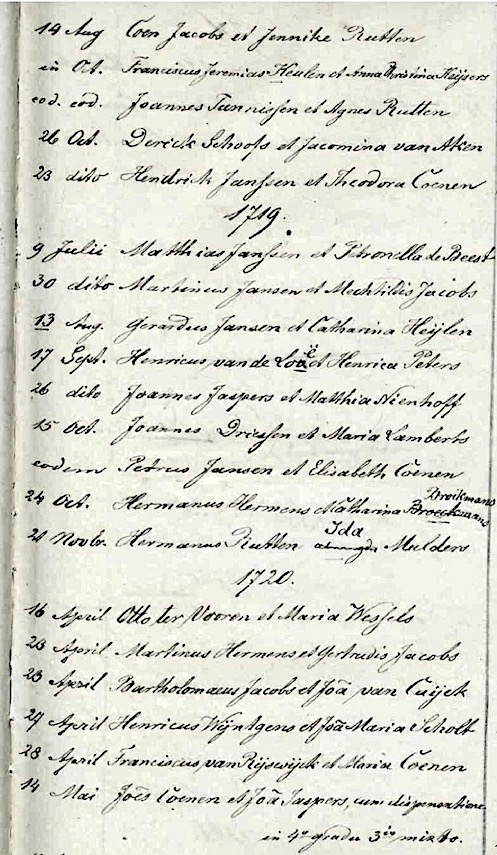 19 Aug Coen Jacobs et Jennike Rutten
in Oct. Franciscus Jeremias Heulen et Anna Christina Keijsers
eod. eod. Joannes Tunnissen et Agnes Rutten
26 Oct. Derick Schoofs et Jacomina van Aken
23 dito Hendrik Janssen et Theodora Coenen
1719.
9 Julii Matthias Janssen et Petronella de Beest
30 dito Martinus Jansen et Mechtildis Jacobs
13 Aug. Gerardus Jansen et Catharina Heijlen
17 Sept. Henricus van de Loo et Henrica Peters
26 dito Joannes Jaspers et Matthia Nienhoff
15 Oct. Joannes Driessen et Maria Lamberts
eodem Petrus Jansen et Elisabeth Coenen
Broikmans
24 Oct. Hermanus Hermens Catharina Broeckmans
Ida
21 Novbr. Hermanus Rutten Mulders
1720.
16 April Otto ter Vooren et Maria Wessels
23 April Martinus Hermens et Gertrudis Jacobs
23 April Bartholomaeus Jacobs et Joã van Cuijck
27 April Henricus Wijntgens et Joã Maria Scholt
28 April Franciscus van Rijswijck et Maria Coenen
14 Mai Joẽs Coenen et Joã Jaspers, cum dispensatione
in 4º gradu 3io mixto.